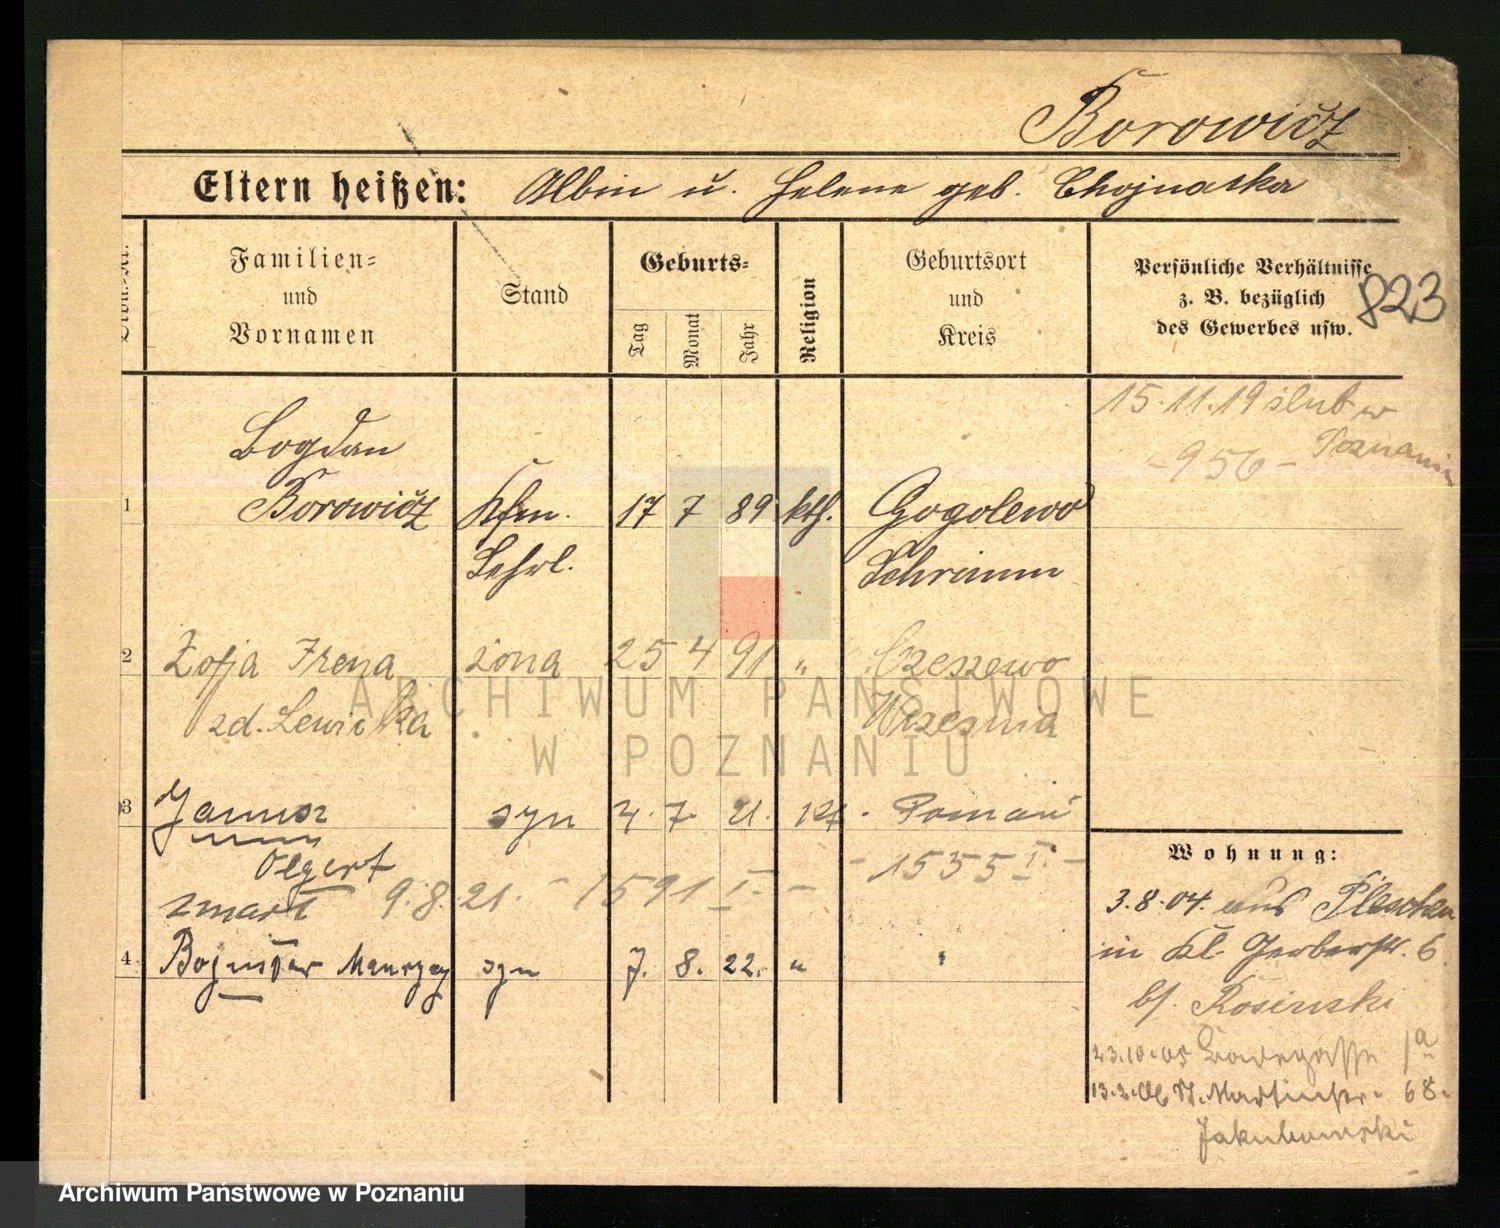 Borowicz
Eltern heißen: Albin u. Helene geb. Chojnacka
Familien-
und
Vornamen
Stand
Geburts-
Tag
Monat
Jahr
Religion
Geburtsort
und
Kreis
Persönliche Verhältnisse
z. B. bezüglich
des Gewerbes usw.
823
15.11.19 ślub w
Poznaniu
-956-
Bogdan
1 Borowicz Kfm. 17 7 89 kth. Gogolewo
Lehrl. Schrimm
2 Zofja Irena żona 25 4 91 " Czeszewo
zd. Lewicka Września
3 Janusz syn 4. 7. 21. rzk. Poznań
Olgert - 1535 I. -
zmarł 9.8.21. - 1591 I. -
4. syn 7. 8. 22. "
Wohnung:
3.8.04. aus Pleschen
in Kl. Gerberstr. 6.
bf. Rosinski
23.10.05 1a
13.2.06 St. Martinstr. 68.
Jakubowski
ARCHIWUM PAŃSTWOWE
W POZNANIU
Archiwum Państwowe w Poznaniu